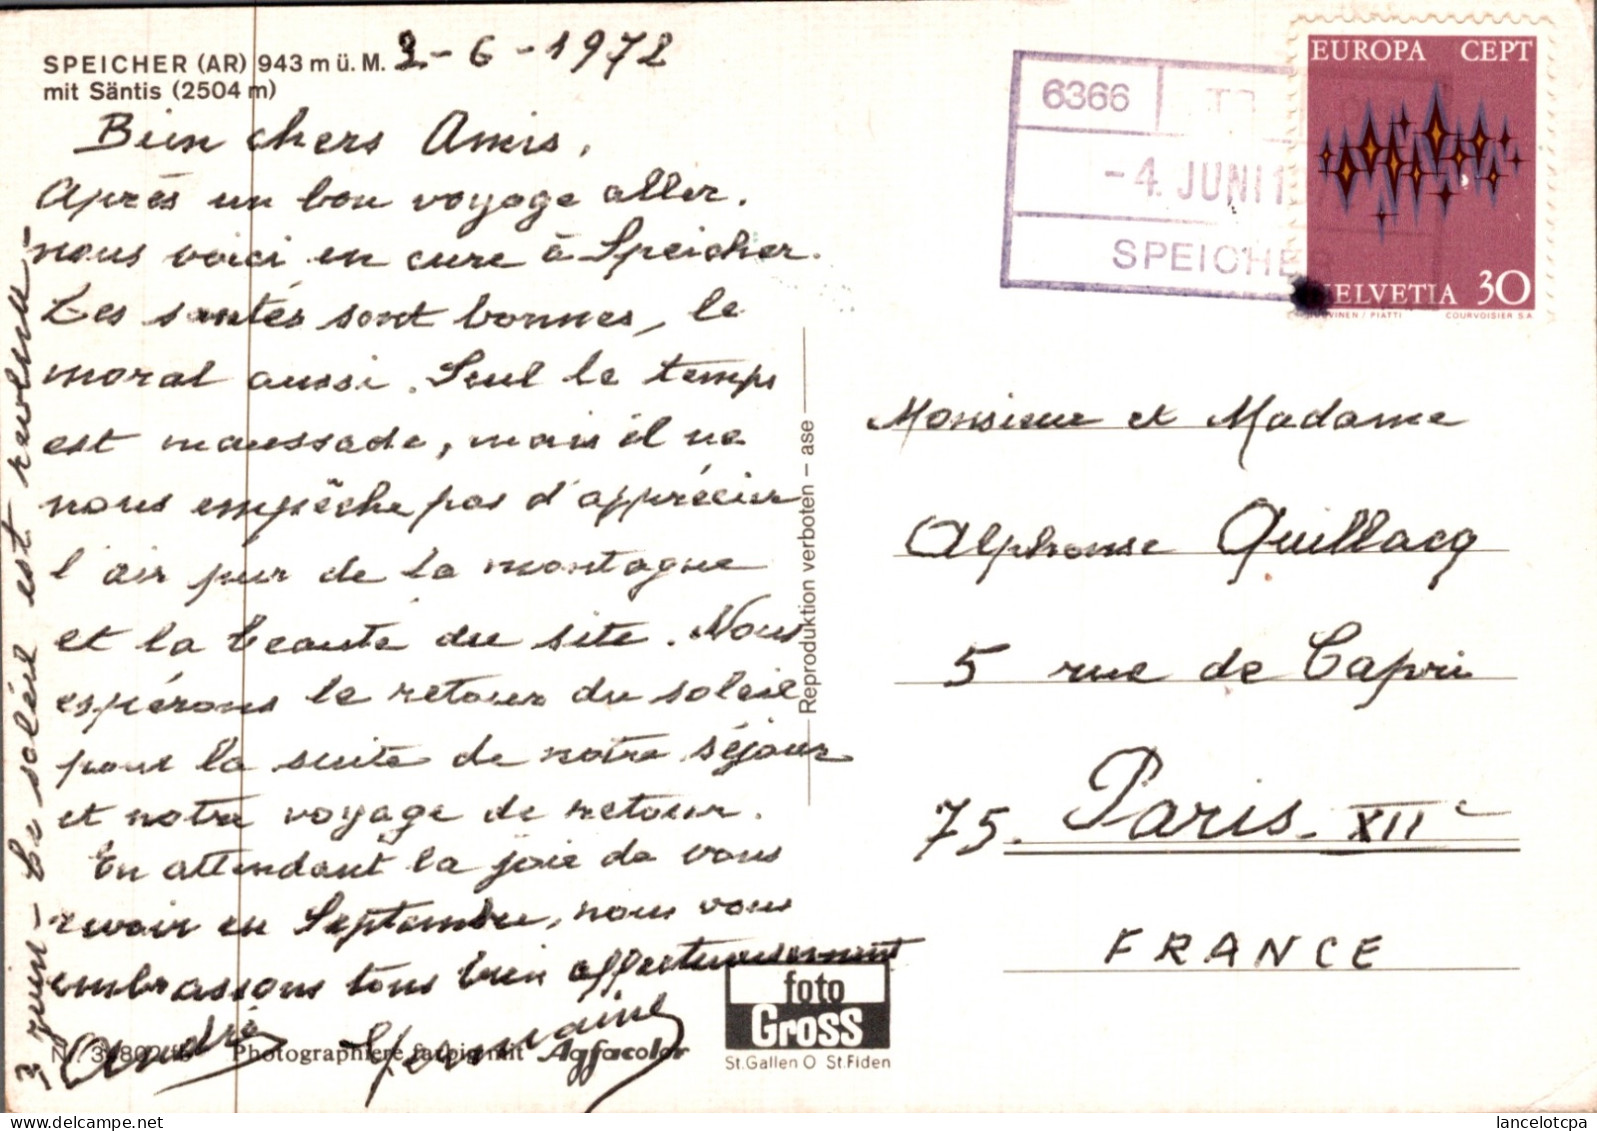 SPEICHER (AR) 943 m ü. M.
mit Säntis (2504 m)
2-6-1972
Bien chers Amis,
Après un bon voyage aller.
nous voici en cure à Speicher.
Les santés sont bonnes, le
moral aussi. Seul le temps
est maussade, mais il ne
nous empêche pas d'apprécier
l'air pur de la montagne
et la beauté du site. Nous
espérons le retour du soleil
pour la suite de notre séjour
et notre voyage de retour.
En attendant la joie de vous
revoir en Septembre, nous vous
embrassons tous bien affectueusement
André Germaine
3 juin - Le soleil est revenu -
Photographiere farbig mit Agfacolor
foto
Gross
St.Gallen O St.Fiden
Reproduktion verboten – ase
6366
-4. JUNI 1
SPEICHER
EUROPA CEPT
HELVETIA 30
PIATTI COURVOISIER S A
Monsieur et Madame
Alphonse Quillacq
5 rue de Capri
75. Paris. XIIe
FRANCE
lancelotcpa